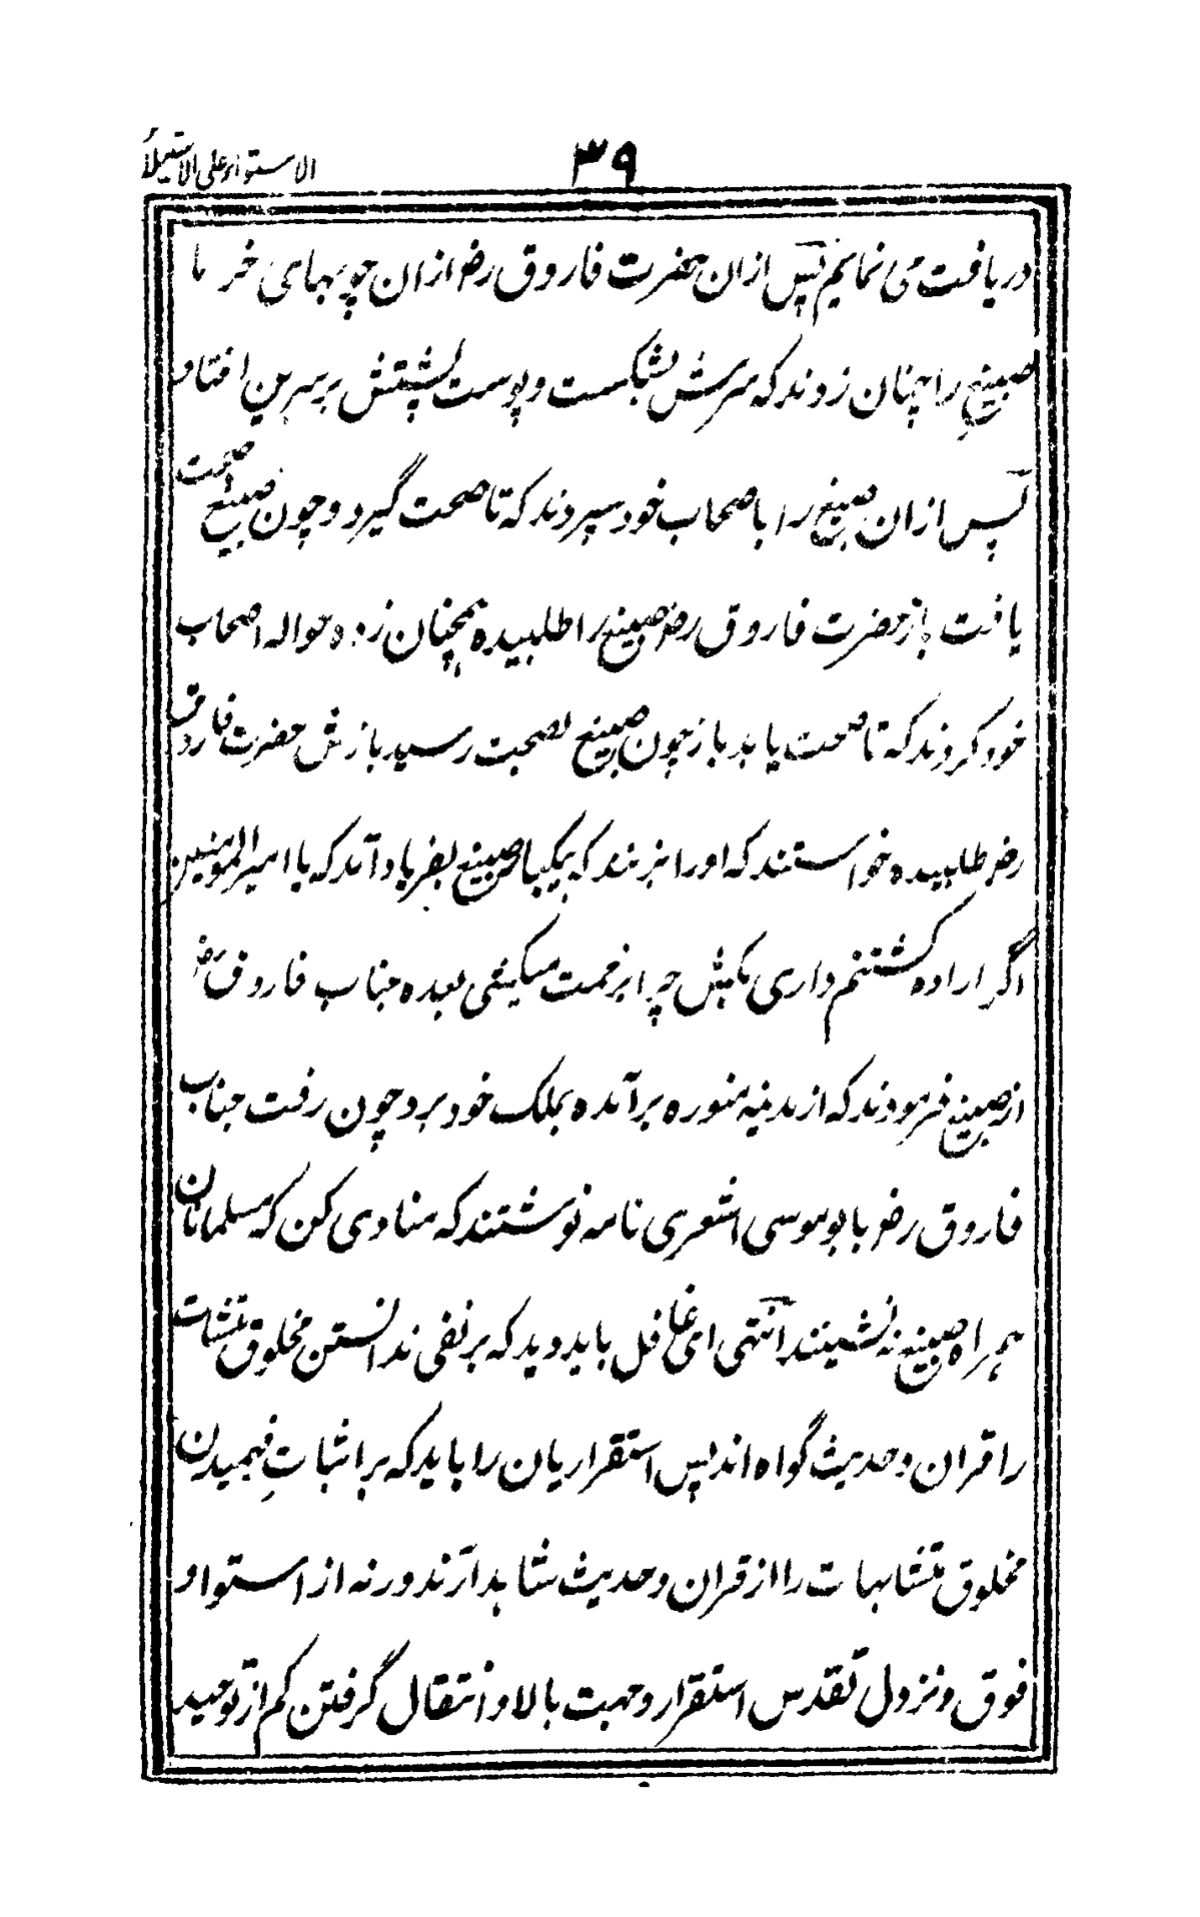 ۳۹
الاستواء علی الاستیلاء
دریافت می نمایم پس ازان حضرت فاروق رضـ ازان چوبهای خرما
صبیغ را چنان زدند که سرش بشکست و پوست پشتش بر سرین افتاد
پس ازان صبیغ را باصحاب خود سپردند که تا صحت گیرد و چون صبیغ صحت
یافت باز حضرت فاروق رضـ صبیغ را طلبیده همچنان زده حواله اصحاب
خود کردند که تا صحت یابد باز چون صبیغ بصحت رسید بازش حضرت فاروق
رضـ طلبیده خواستند که او را بزنند که یکبار صبیغ بفریاد آمد که یا امیر المؤمنین
اگر اراده کشتنم داری بکش چرا بزحمت میکشی بعده جناب فاروق رضـ
از صبیغ فرمودند که از مدینه منوره برآمده بملک خود برو چون رفت جناب
فاروق رضـ بابوموسی اشعری نامه نوشتند که منادی کن که مسلمانان
همراه صبیغ نه نشینند انتهی ای غافل باید دید که بر نفی ندانستن مخلوق متشابهات
را قران و حدیث گواه اند پس استقراریان را باید که بر اثبات فهمیدن
مخلوق متشابهات را از قران و حدیث شاهد آرند ورنه از استوا و
فوق و نزول تقدس استقرار و جهت بالا و انتقال گرفتن کم از توحید